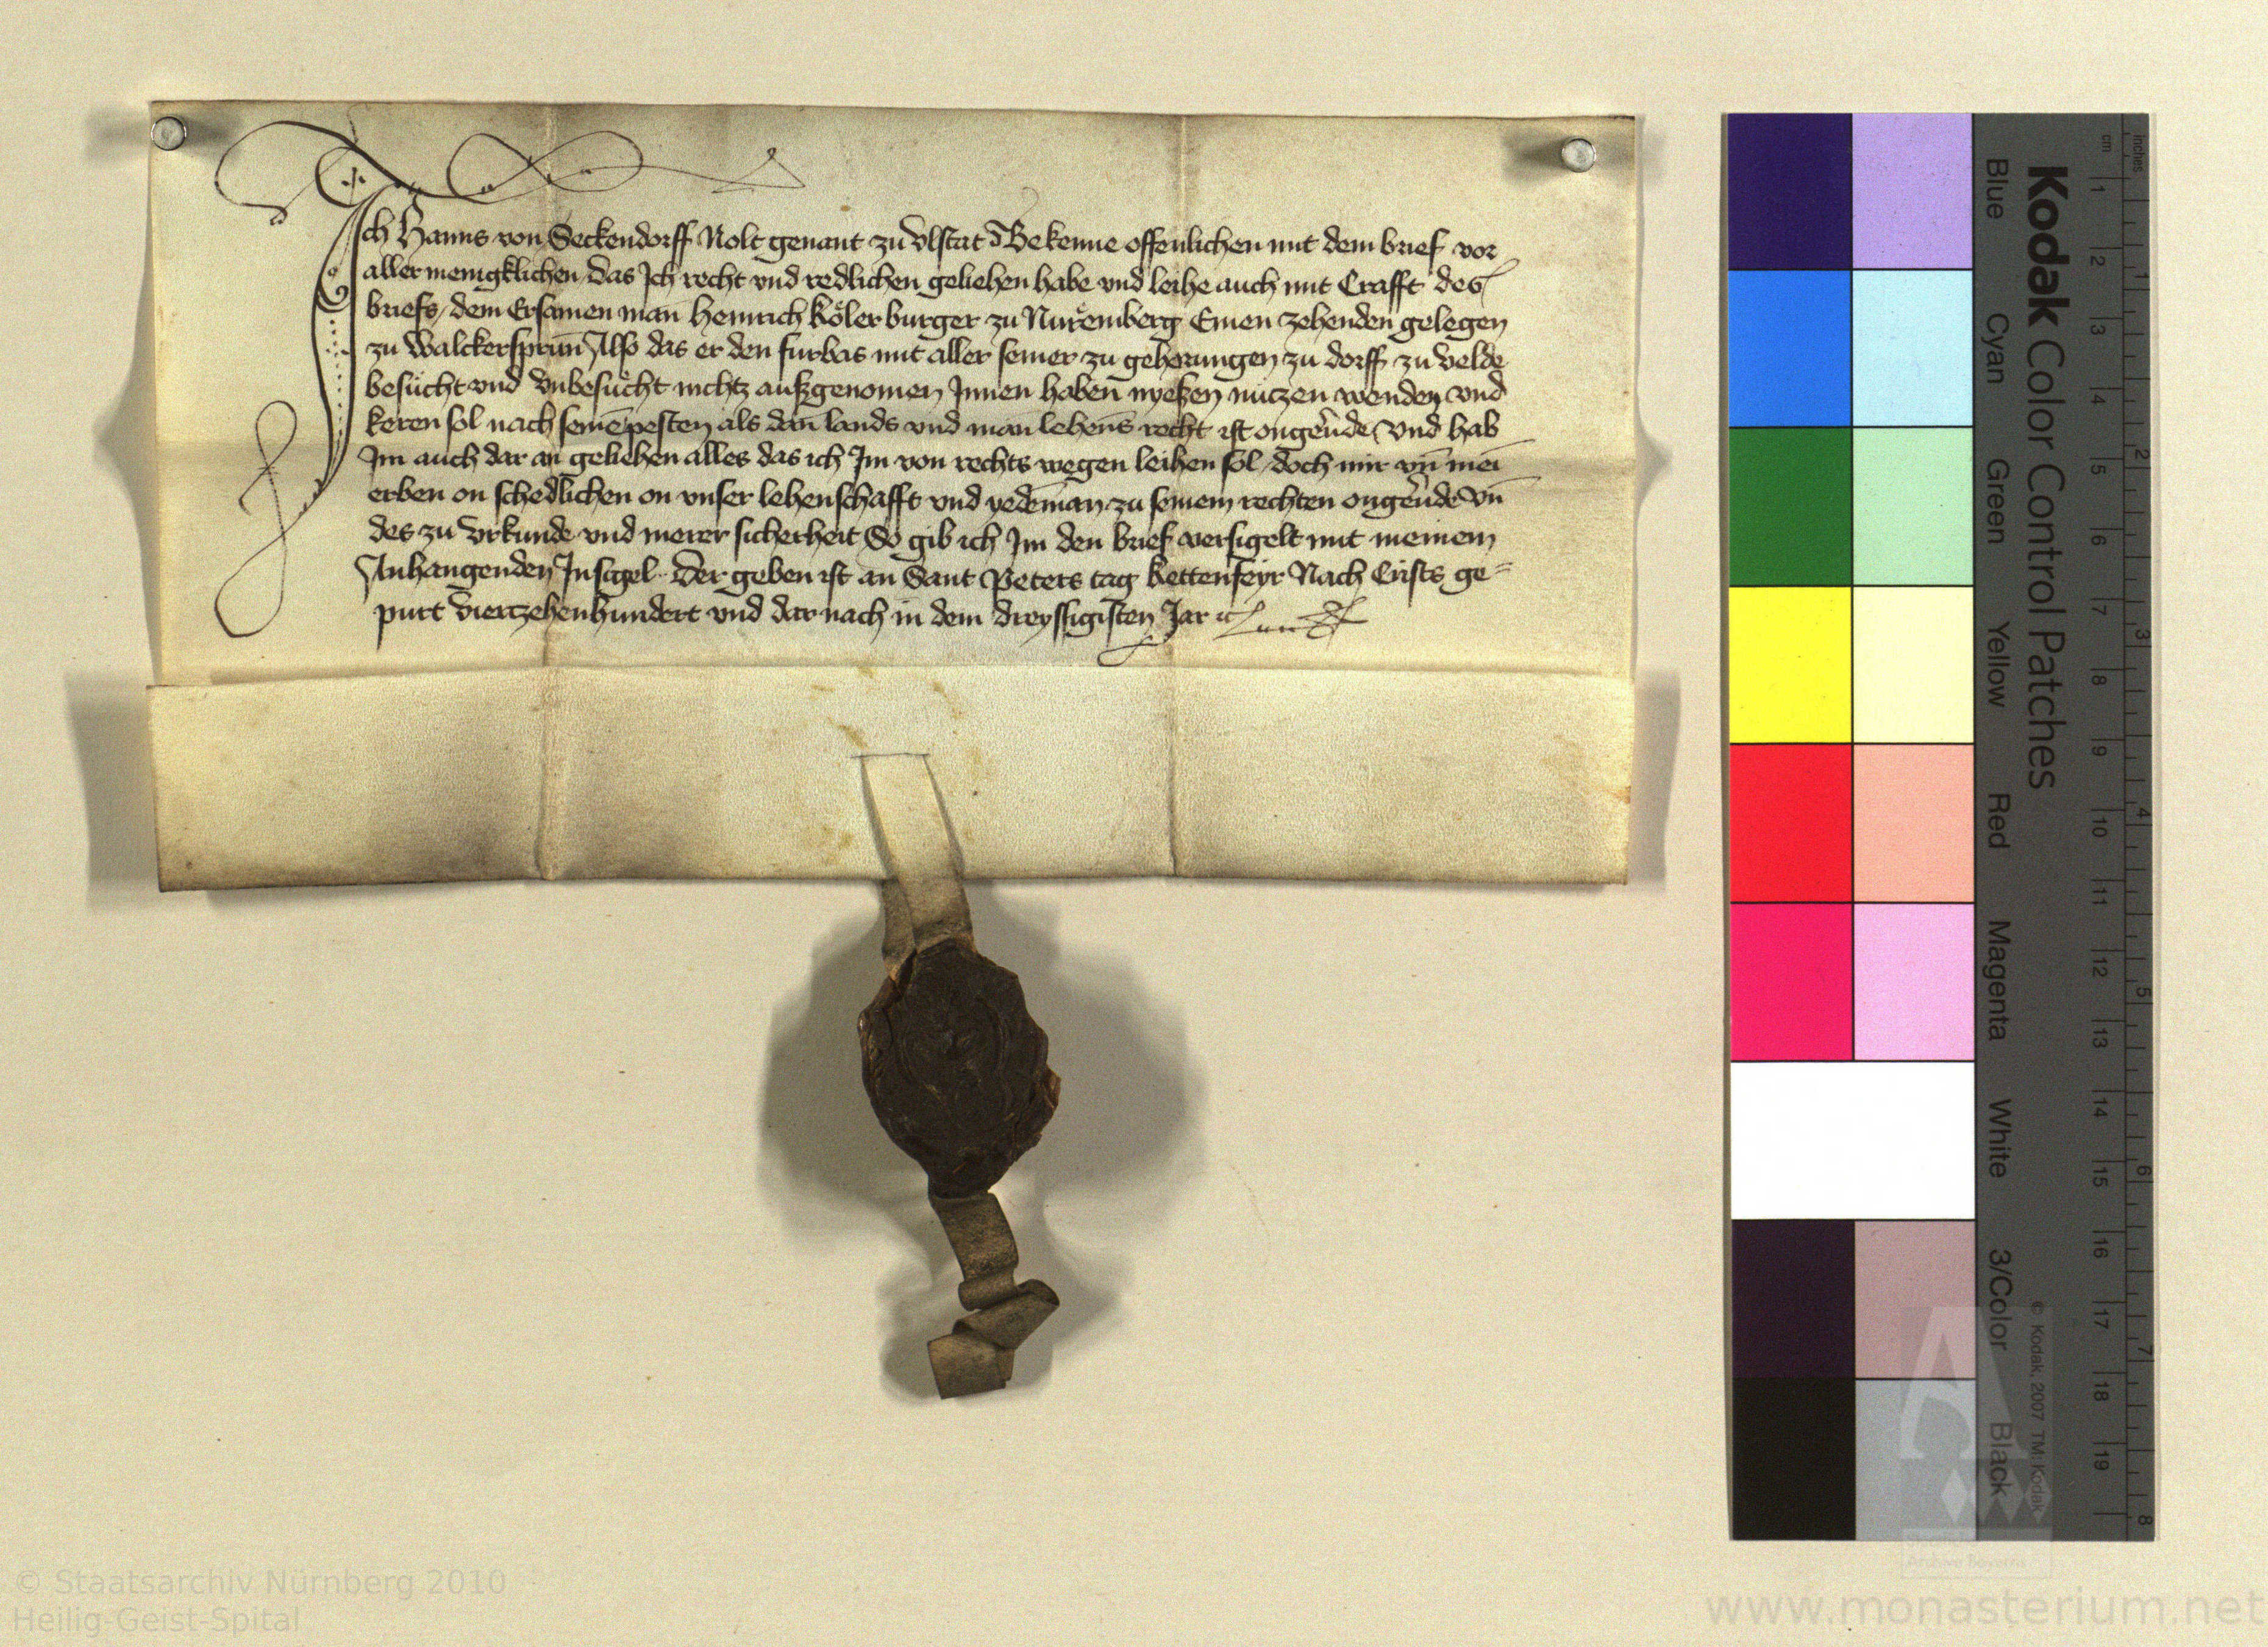 Ich Hanns von Seckendorff Nolt genant zu Vlstat Bekenne offenlichen mit dem brief vor
aller menigklichen das Ich recht vnd redlichen geliehen habe vnd leihe auch mit Crafft des
briefs dem Ersamen man̄ Heinrich Kőler burger zu Nuremberg Einen zehenden gelegen
zu Walckersprun̄ Also das er den furbas mit aller seiner zu gehorungen zu dorff zu velde
besücht vnd vnbesücht nichtz außgenomen Innen haben nyeßen nüczen wenden vnd
keren sol nach seinē pesten als dan̄ lands vnd man̄ lehens recht ist ongeuͤde Vnd hab
Im auch dar an geliehen alles das ich Im von rechts wegen leihen sol doch mir vn̄ mei
erben on schedlichen on vnser lehenschafft vnd yedēman zu seinem rechten ongeuͤde Vn̄
des zu Vrkunde vnd merer sicherheit So gib ich Im den brief versigelt mit meinem
Anhangenden Insigel Der geben ist an Sant Peters tag Kettenfeyr Nach Crists ge=
purt Viertzehenhundert vnd dar nach in dem dreyssigisten Jar
Kodak Color Control Patches
Blue Cyan Green Yellow Red Magenta White 3/Color Black
© Kodak, 2007 TM: Kodak
cm 1 2 3 4 5 6 7 8 9 10 11 12 13 14 15 16 17 18 19
inches 1 2 3 4 5 6 7 8
© Staatsarchiv Nürnberg 2010
Heilig-Geist-Spital
www.monasterium.net